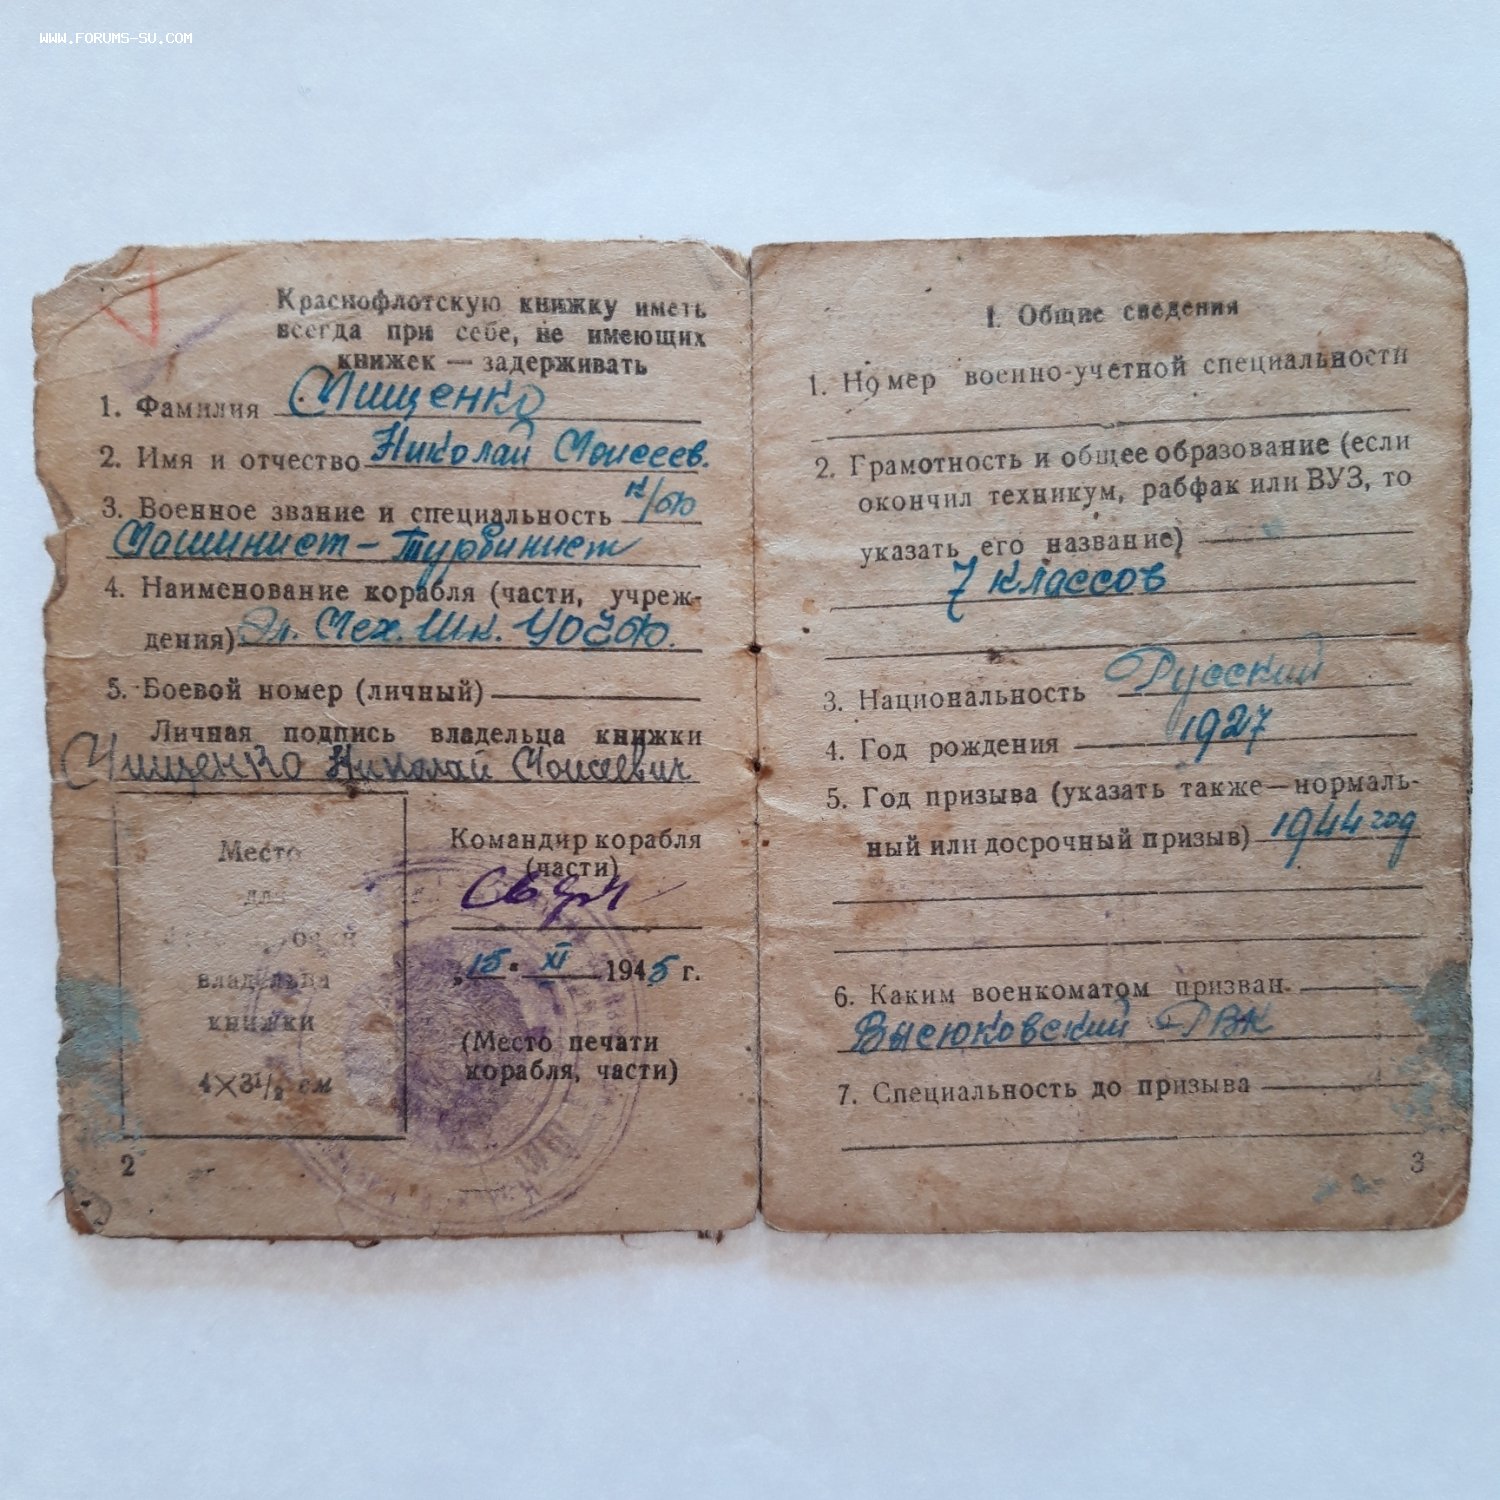 WWW.FORUMS-SU.COM
Краснофлотскую книжку иметь
всегда при себе, не имеющих
книжек — задерживать
1. Фамилия Мищенко
2. Имя и отчество Николай Моисеев.
3. Военное звание и специальность к/фл
Машинист-Турбинист
4. Наименование корабля (части, учреж-
дения) Эл. Мех. Шк. УО
5. Боевой номер (личный)
Личная подпись владельца книжки
Мищенко Николай Моисеевич
Место
для
владельца
книжки
4×3½ см
Командир корабля
(части)
„15" XI 1945 г.
(Место печати
корабля, части)
2
I. Общие сведения
1. Номер военно-учетной специальности
2. Грамотность и общее образование (если
окончил техникум, рабфак или ВУЗ, то
указать его название)
7 классов
3. Национальность Русский
4. Год рождения 1927
5. Год призыва (указать также—нормаль-
ный или досрочный призыв) 1944 год
6. Каким военкоматом призван
Высюковский РВК
7. Специальность до призыва
3